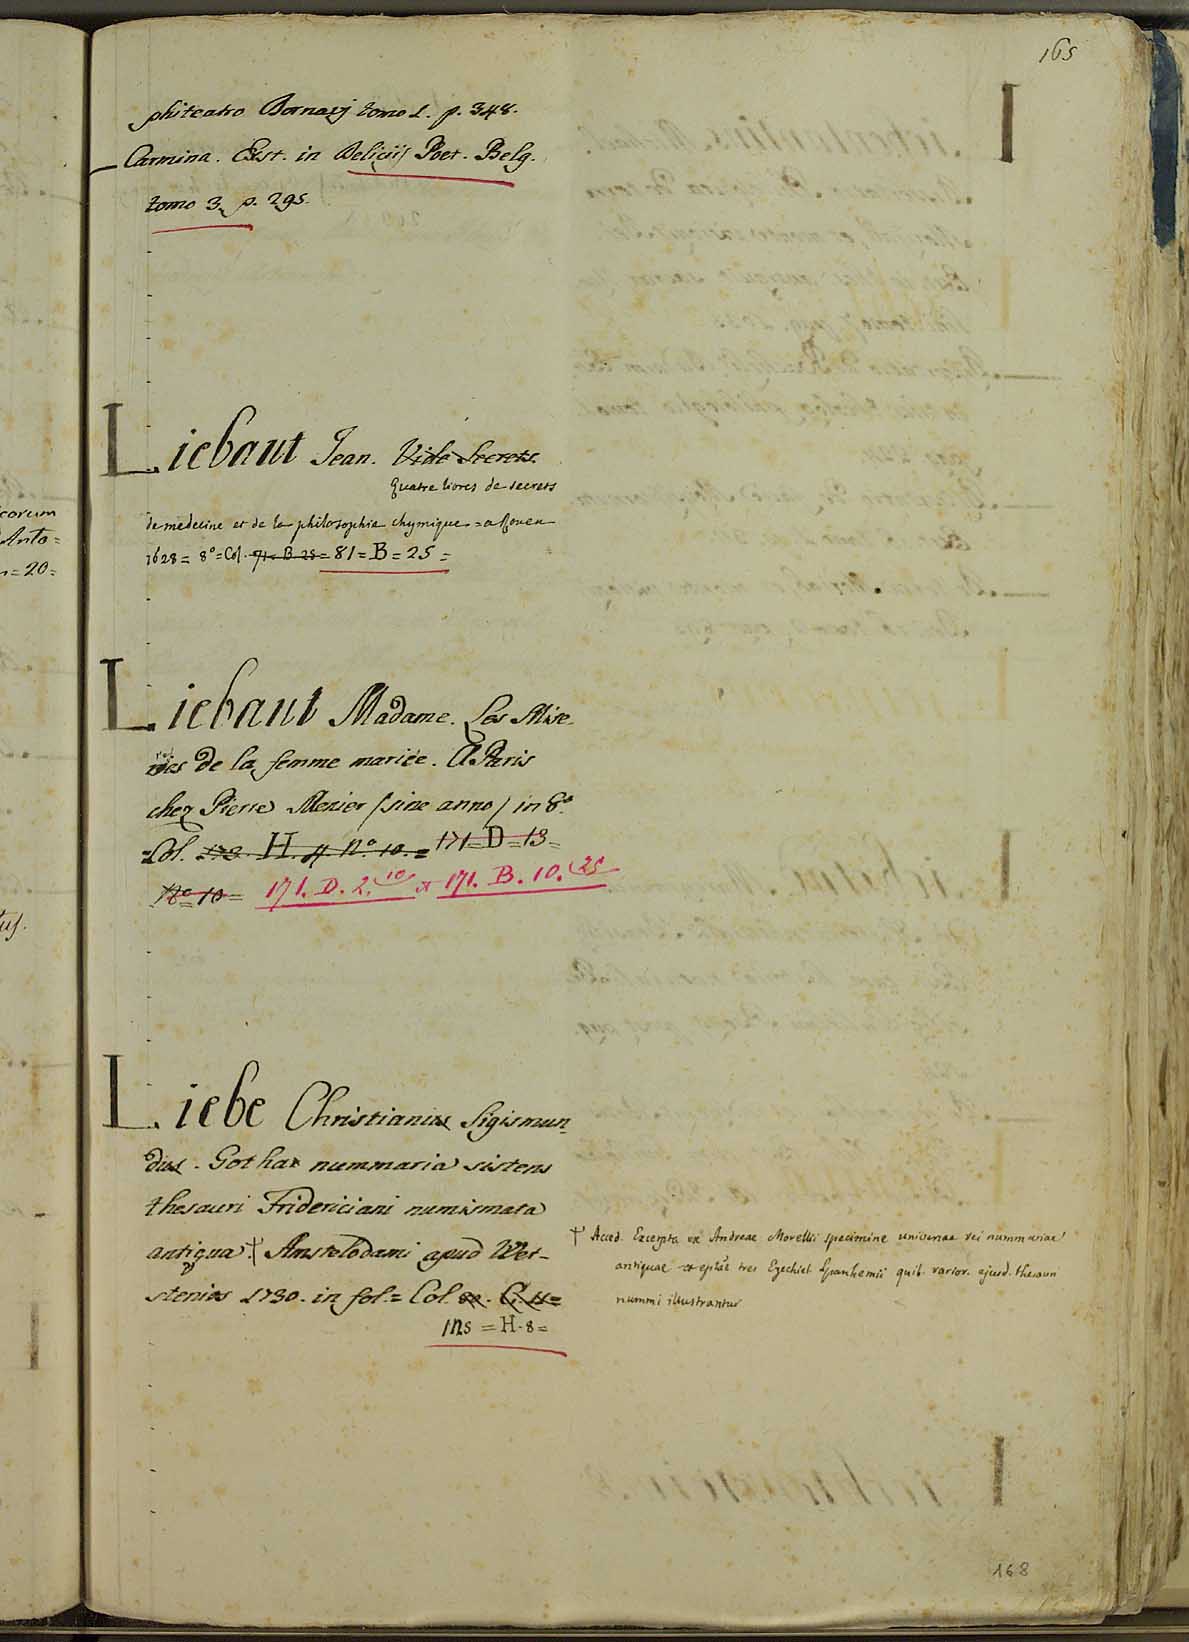 165
phiteatro Dornavij tomo 1. p. 348.
Carmina. Exst. in Delicijs Poet. Belg.
tomo 3. p. 295.
Liebaut Jean. Vide Secrets.
Quatre livres de secrets
de medecine et de la philosophie chymique = a Rouen
1628 = 8° = Col. 71 = B. 25 = 81 = B = 25 =
Liebaut Madame. Les Mise-
res de la femme mariée. A Paris
chez Pierre Menier (sine anno) in 8°.
= Col. H. N° 10. = 171 = D = 13 =
N° 10 = 171. D. 2. (10 et 171. B. 10. (25
Liebe Christianus Sigismun-
dus. Gotha nummaria sistens
thesauri Fridericiani numismata
antiqua † Amstelodami apud Wet-
stenios 1730. in fol. = Col.
= H. 8 =
† Acced. Excerpta ex Andreae Morellii specimine universae rei nummariae
antiquae et eplae tres Ezechiel Spanhemii quib. varior. ejusd. thesauri
nummi illustrantur
168
corum
Anto =
= 20 =